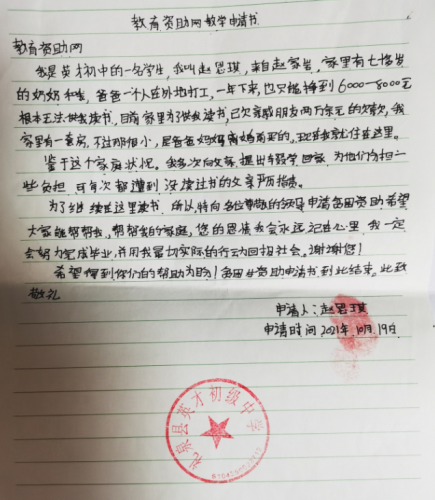 教育资助网助学申请书
教育资助网
我是英才初中的一名学生,我叫赵思琪,来自赵家岩,家里有七旬多
的奶奶和我,爸爸一个人在外地打工,一年下来,也只能挣到6000—8000元
根本无法供我读书,目前家里为了供我读书,已欠亲戚朋友两万余元的欠款,我
家里有一套房,不过那很小,是爸爸妈妈离婚前买的,现在我就住在这里。
鉴于这个家庭状况,我多次向父亲提出辍学回家,为他们分担一
些负担,可每次都遭到没读过书的父亲严厉指责。
为了继续在这里读书,所以特向各位尊敬的领导申请贫困资助希望
大家能帮帮我,帮帮我的家庭,您的恩情我会永远记在心里,我一定
会努力完成毕业,并用我最切实际的行动回报社会,谢谢您!
希望得到你们的帮助为盼!贫困生资助申请书,到此结束。此致
敬礼
申请人:赵思琪
申请时间:2021年.10月.19日
礼泉县英才初级中学